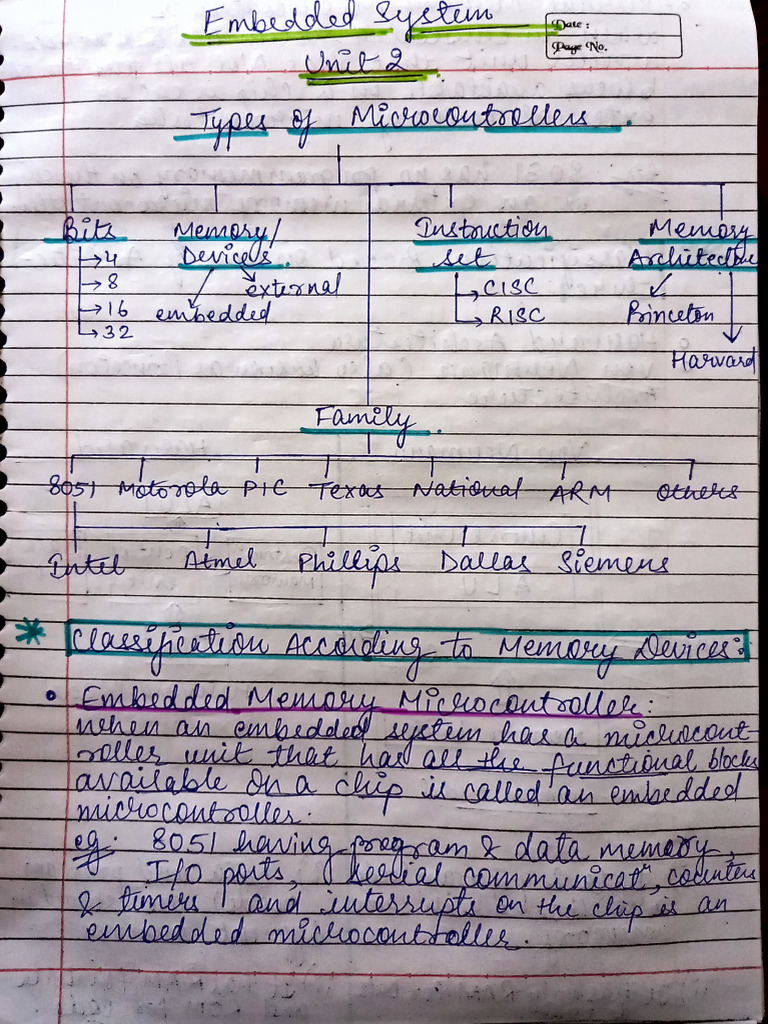 Embedded System
Date :
Page No.
Unit 2
Types of Microcontrollers.
Bits
Memory/
Instruction
Memory
Devices.
set
Architecture
→4
→8
→16
→32
embedded
external
→CISC
→RISC
Princeton
Harvard
Family.
8051 Motorola PIC Texas National ARM others
Intel Atmel Phillips Dallas Siemens
* Classification According to Memory Devices:
• Embedded Memory Microcontroller:
when an embedded system has a microcont-
roller unit that has all the functional blocks
available on a chip is called an embedded
microcontroller.
eg. 8051 having program & data memory,
I/O ports, serial communicatⁿ, counters
& timers and interrupts on the chip is an
embedded microcontroller.